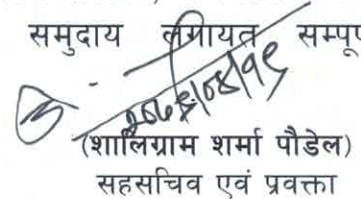 समुदाय लगायत सम्पू
(शालिग्राम शर्मा पौडेल)
सहसचिव एवं प्रवक्ता